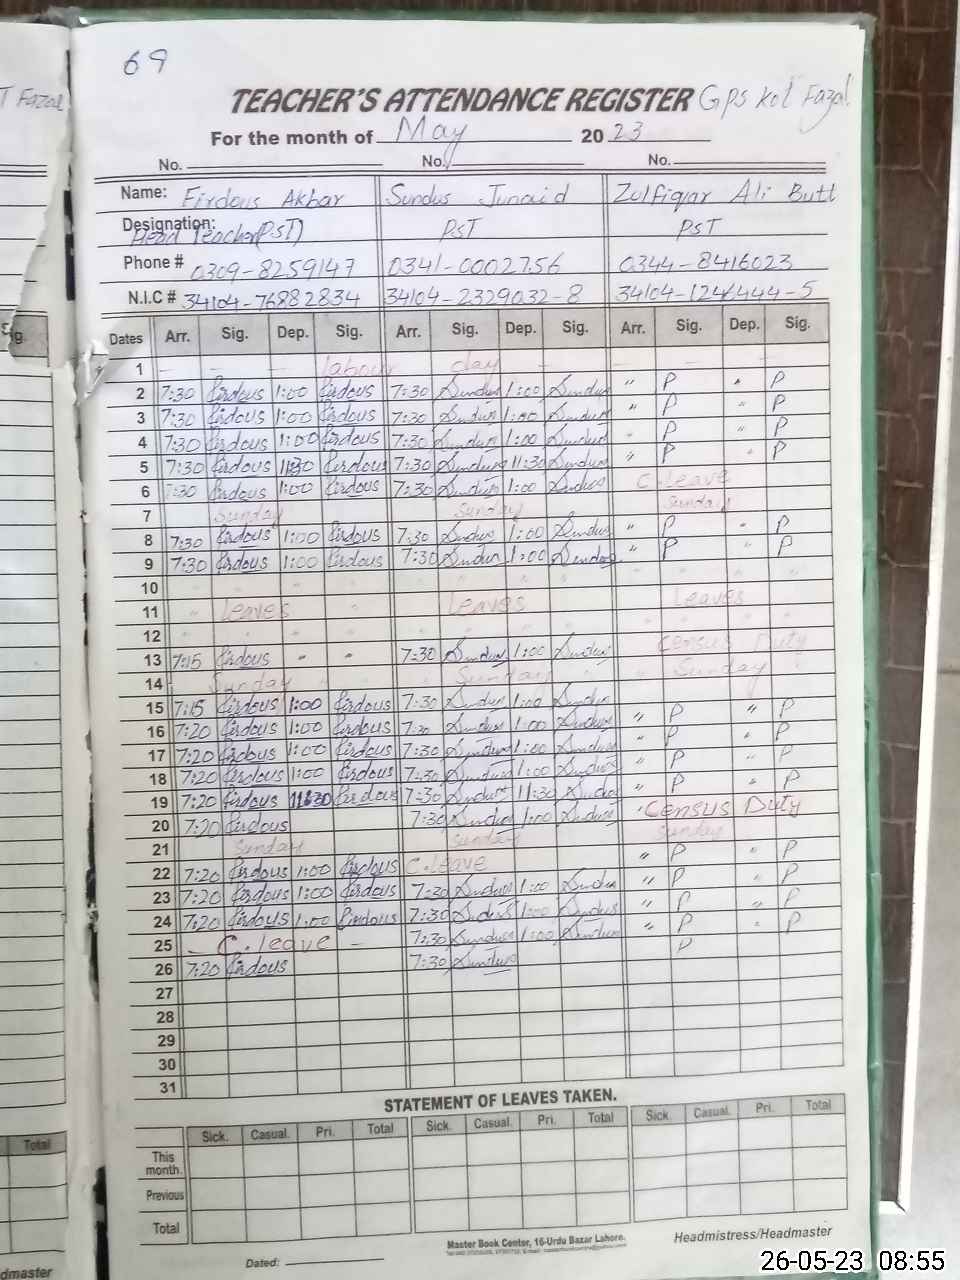 69
T Fazal
TEACHER'S ATTENDANCE REGISTER GPS Kot Fazal
For the month of May 2023
No. No. No.
Name: Firdous Akbar Sundus Junaid Zulfiqar Ali Butt
Designation: Head Teacher(PST) PST PST
Phone # 0309-8259147 0341-0002756 0344-8416023
N.I.C # 34104-76882834 34104-2329032-8 34104-1246444-5
Dates Arr. Sig. Dep. Sig. Arr. Sig. Dep. Sig. Arr. Sig. Dep. Sig.
1 - - - labour day - - - -
2 7:30 Firdous 1:00 Firdous 7:30 Sundus 1:00 Sundus " P " P
3 7:30 Firdous 1:00 Firdous 7:30 Sundus 1:00 Sundus " P " P
4 7:30 Firdous 1:00 Firdous 7:30 Sundus 1:00 Sundus " P " P
5 7:30 Firdous 11:30 Firdous 7:30 Sundus 11:30 Sundus " P " P
6 7:30 Firdous 1:00 Firdous 7:30 Sundus 1:00 Sundus C.leave
7 Sunday Sunday Sunday
8 7:30 Firdous 1:00 Firdous 7:30 Sundus 1:00 Sundus " P " P
9 7:30 Firdous 1:00 Firdous 7:30 Sundus 1:00 Sundus " P " P
10
11 " leaves " leaves leaves
12
13 7:15 Firdous " " 7:30 Sundus 1:00 Sundus Census Duty
14 Sunday Sunday Sunday
15 7:15 Firdous 1:00 Firdous 7:30 Sundus 1:00 Sundus " P " P
16 7:20 Firdous 1:00 Firdous 7:30 Sundus 1:00 Sundus " P " P
17 7:20 Firdous 1:00 Firdous 7:30 Sundus 1:00 Sundus " P " P
18 7:20 Firdous 1:00 Firdous 7:30 Sundus 1:00 Sundus " P " P
19 7:20 Firdous 11:30 Firdous 7:30 Sundus 11:30 Sundus " P " P
20 7:20 Firdous 7:30 Sundus 1:00 Sundus Census Duty
21 Sunday Sunday Sunday
22 7:20 Firdous 1:00 Firdous C.leave " P " P
23 7:20 Firdous 1:00 Firdous 7:30 Sundus 1:00 Sundus " P " P
24 7:20 Firdous 1:00 Firdous 7:30 Sundus 1:00 Sundus " P " P
25 - C.leave - 7:30 Sundus 1:00 Sundus " P " P
26 7:20 Firdous 7:30 Sundus P
27
28
29
30
31
STATEMENT OF LEAVES TAKEN.
Sick. Casual. Pri. Total Sick. Casual. Pri. Total Sick. Casual. Pri. Total
This month.
Previous
Total
Total
Master Book Center, 16-Urdu Bazar Lahore.
Dated:
Headmistress/Headmaster
dmaster
26-05-23 08:55